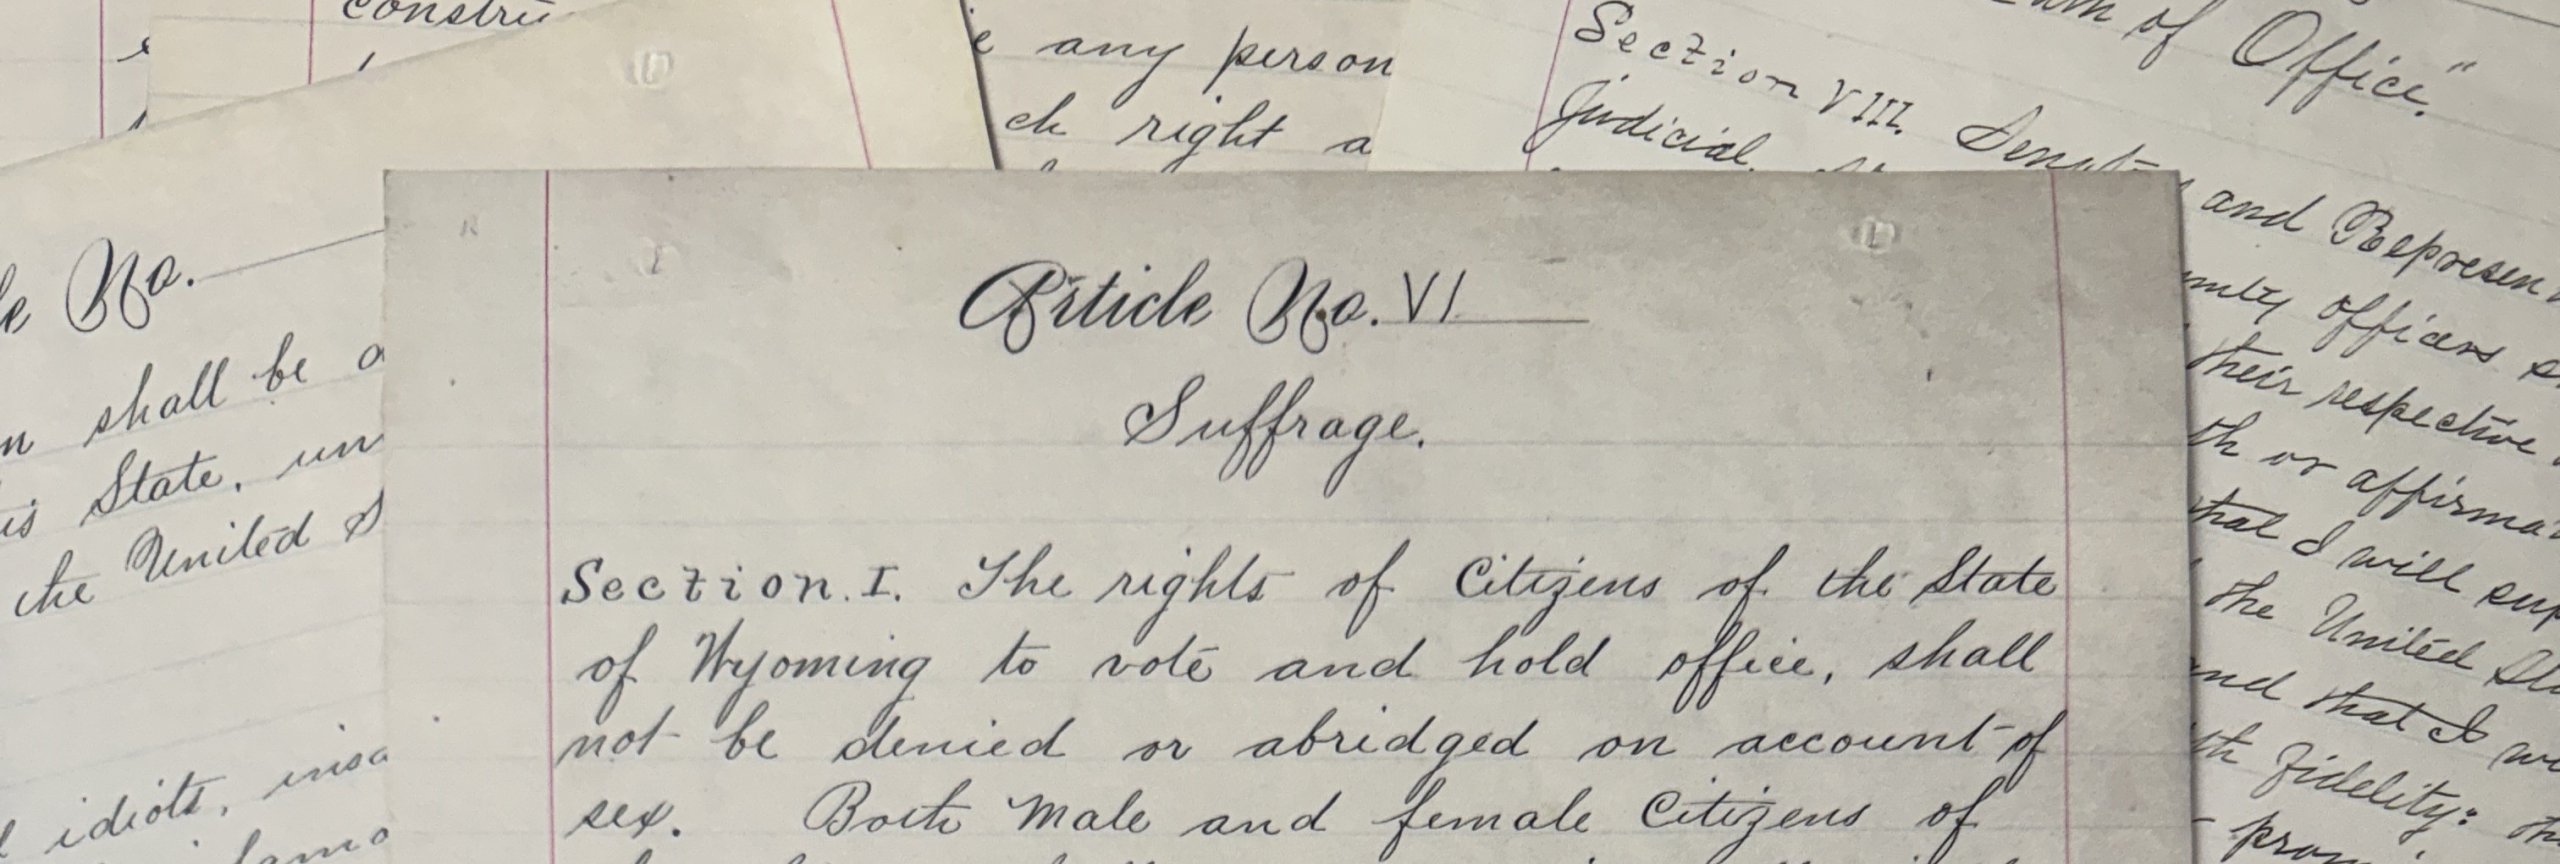 constru
e any person
ch right a
of Office."
Section VIII.
and Represen
Judicial
nty officers s
their respective
th or affirma
that I will sup
the United Sta
and that I w
th fidelity:
No.
n shall be a
is State, un
the United S
idiots, insa
Article No. VI
Suffrage.
Section. I. The rights of Citizens of the State
of Wyoming to vote and hold office, shall
not be denied or abridged on account of
sex. Both Male and female Citizens of